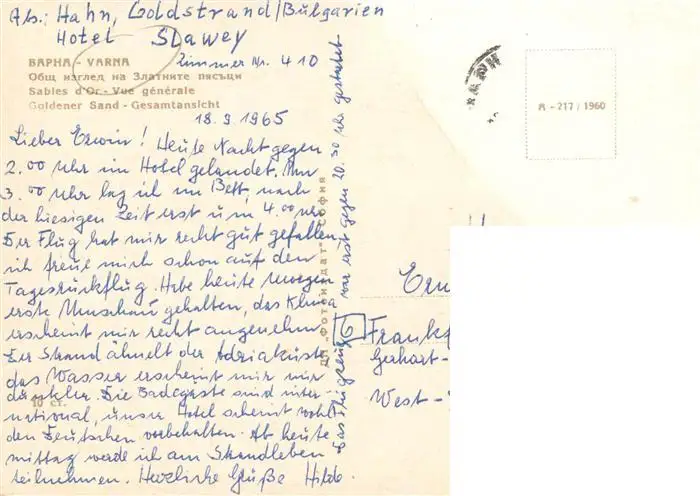 Ab.: Hahn, Goldstrand/Bulgarien
Hotel Slawey
Zimmer Nr. 410
ВАРНА - VARNA
Общ изглед на Златните пясъци
Sables d'Or - Vue générale
Goldener Sand - Gesamtansicht
18.9.1965
Lieber Erwin! Heute Nacht gegen
2.00 Uhr im Hotel gelandet. Um
3.00 Uhr lag ich im Bett, nach
der hiesigen Zeit erst um 4.00 Uhr
Der Flug hat mir recht gut gefallen,
ich freue mich schon auf den
Tagesrückflug. Habe heute morgen
erste Umschau gehalten, das Klima
erscheint mir recht angenehm
Der Strand ähnelt der Adriaküste
das Wasser erscheint mir nur
dunkler. Die Badegäste sind inter-
national, unser Hotel scheint wohl
den Deutschen vorbehalten. Ab heute
mittag werde ich am Strandleben
teilnehmen. Herzliche Grüße Hilde.
10 ст.
Das Flugzeug war erst gegen 20.30 Uhr gestartet
ДП "Фотоиздат" София
А - 217 / 1960
Frankf
Gerhart-
West-